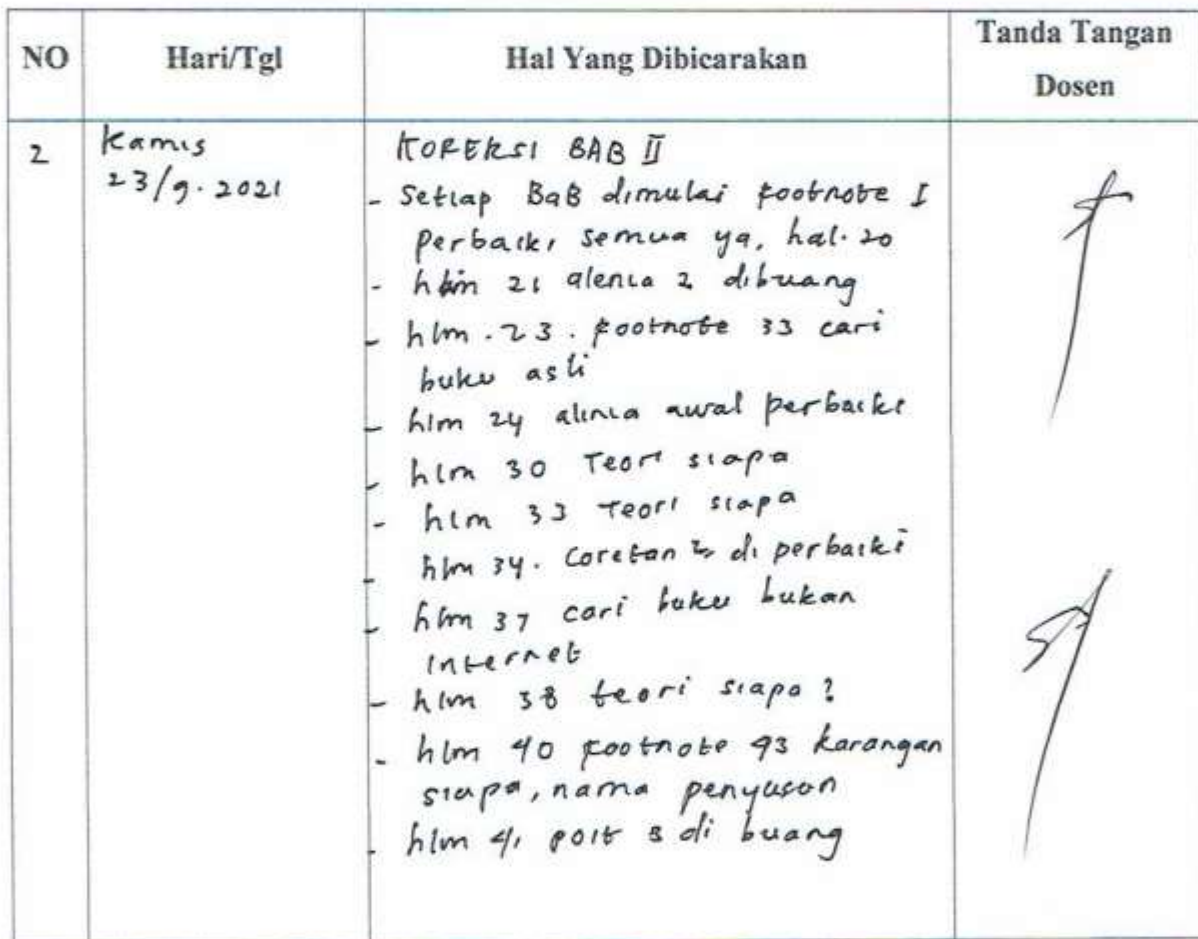 NO Hari/Tgl Hal Yang Dibicarakan Tanda Tangan Dosen
2 Kamis
23/9.2021
KOREKSI BAB II
- Setiap BaB dimulai footnote I
perbaiki semua ya, hal. 20
- hlm 21 alenia 2 dibuang
- hlm. 23. footnote 33 cari
buku asli
- hlm 24 alinia awal perbaiki
- hlm 30 Teori siapa
- hlm 33 Teori siapa
- hlm 34. Coretan di perbaiki
- hlm 37 cari buku bukan
internet
- hlm 38 teori siapa?
- hlm 40 footnote 93 karangan
siapa, nama penyusun
- hlm 41 di buang